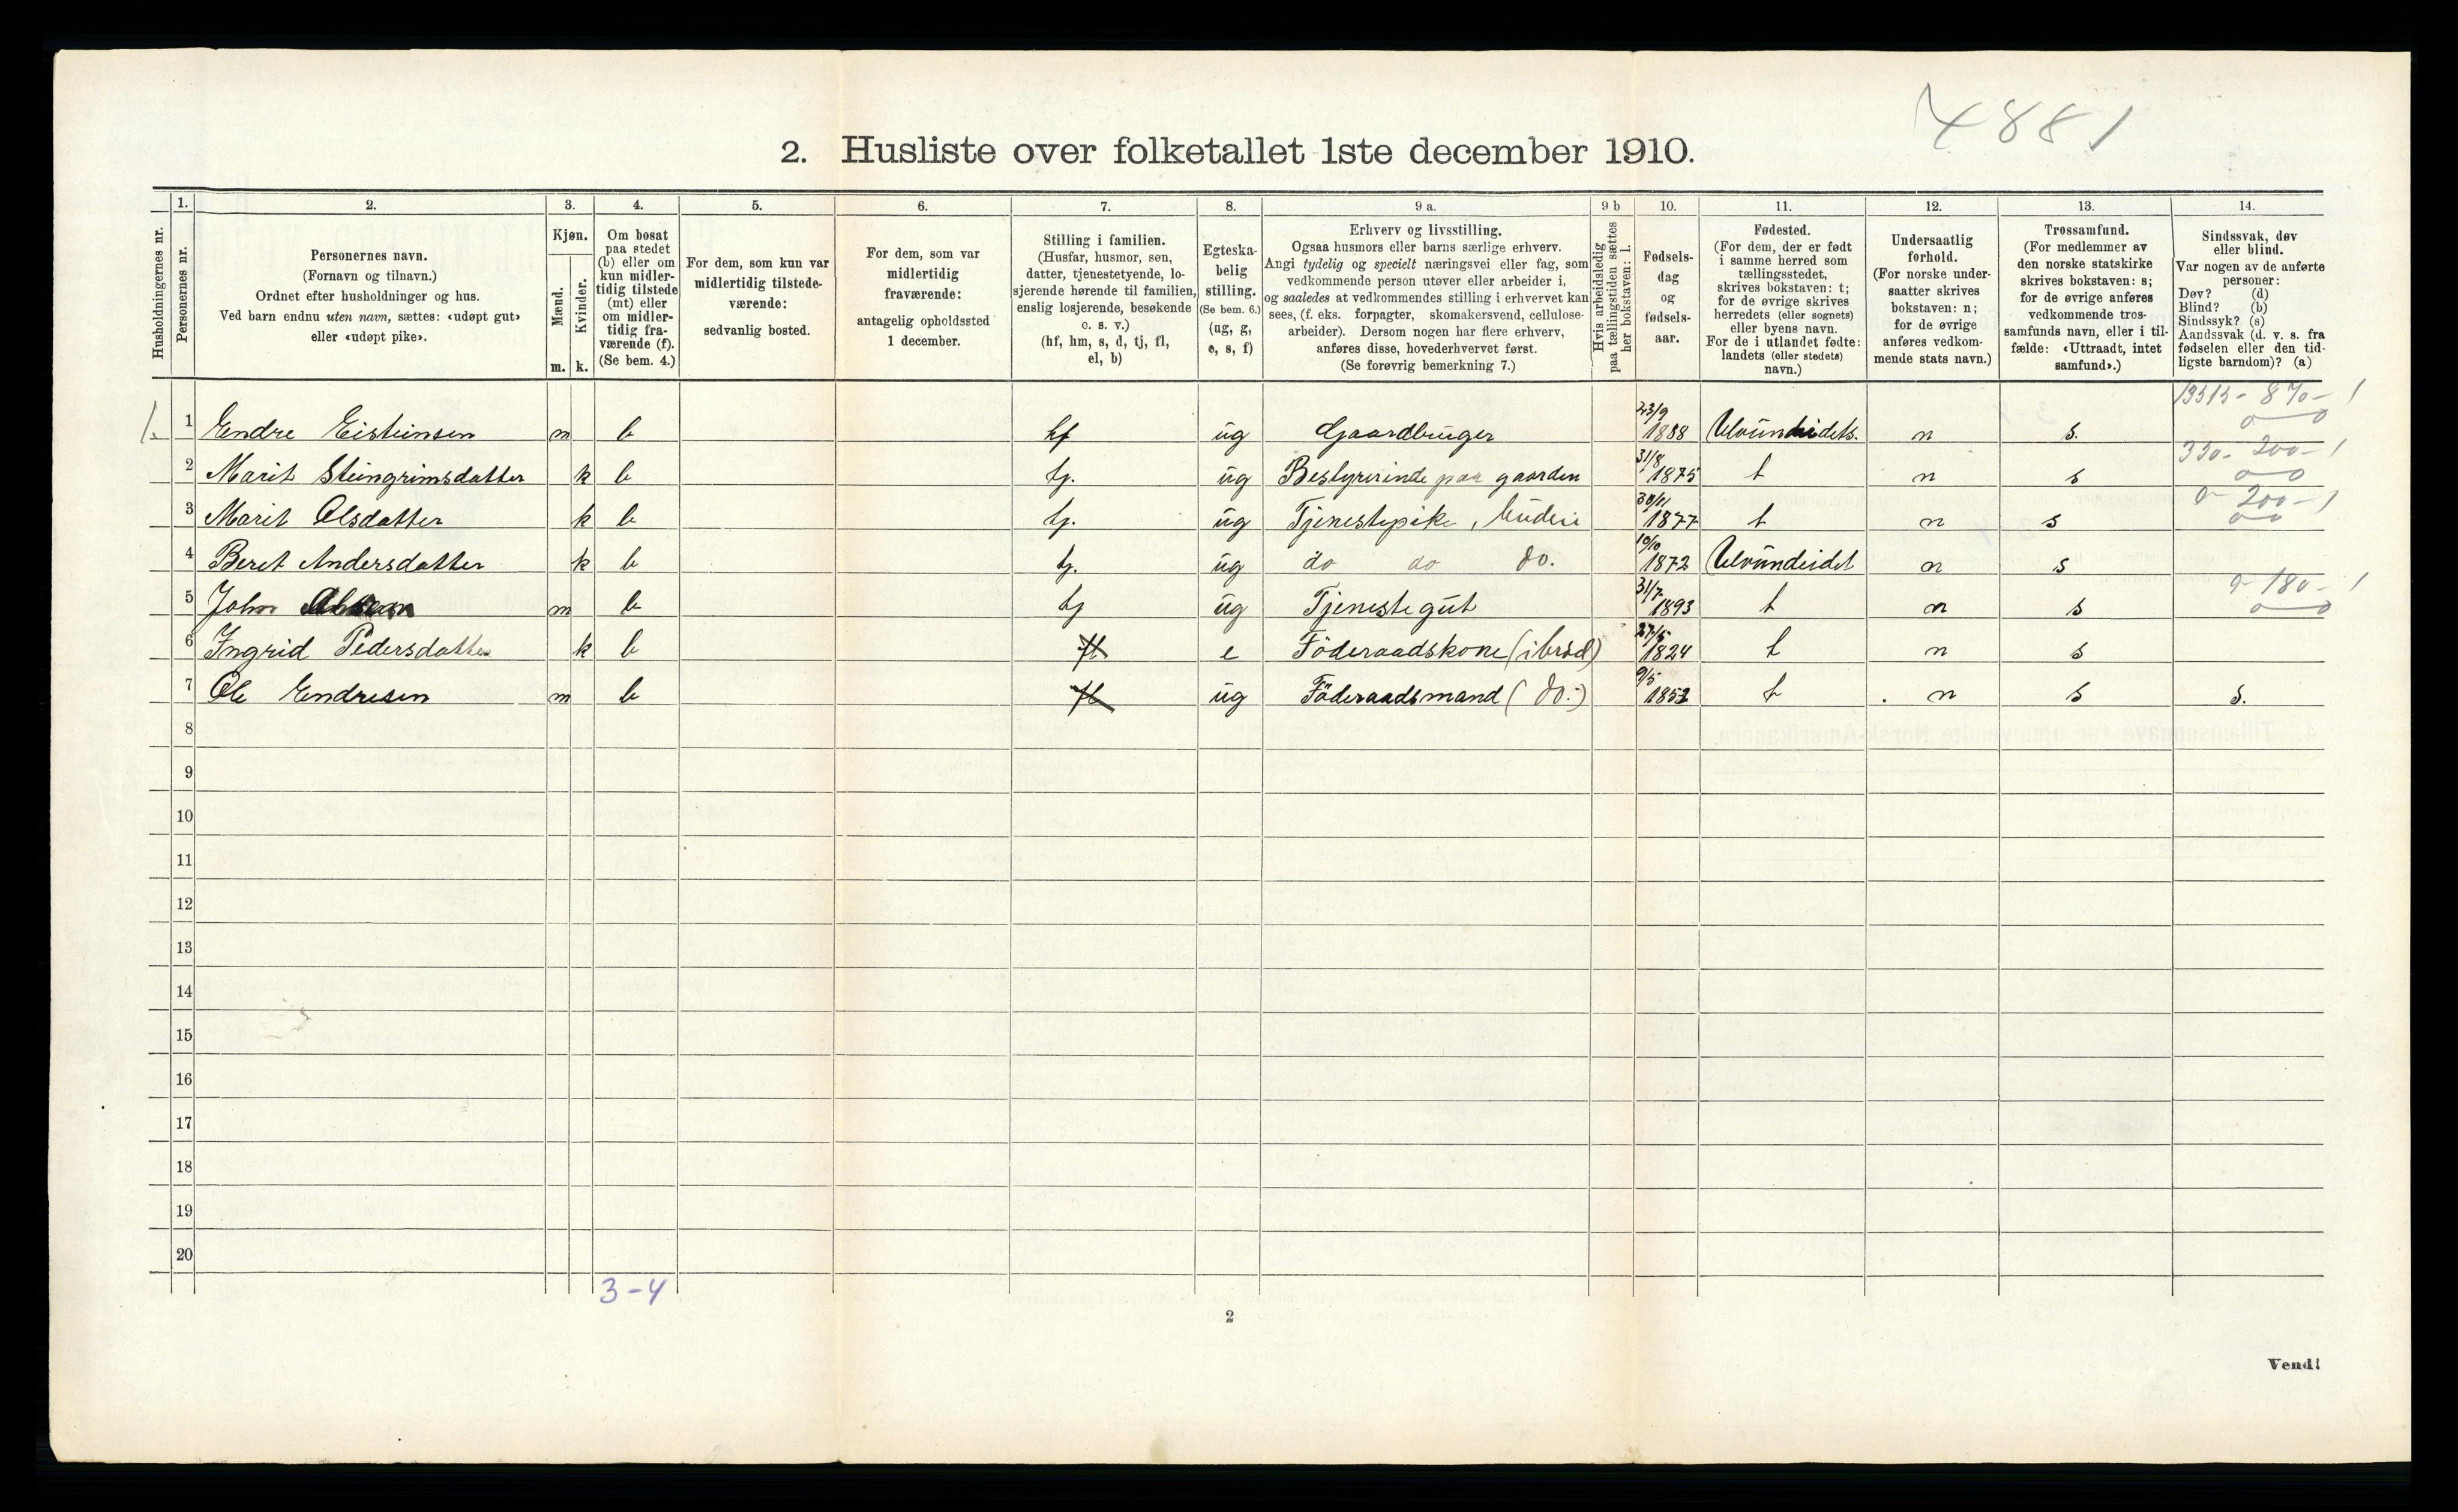 4881
2. Husliste over folketallet 1ste december 1910.
Husholdningernes nr.
1. Personernes nr.
2. Personernes navn.
(Fornavn og tilnavn.)
Ordnet efter husholdninger og hus.
Ved barn endnu uten navn, sættes: «udøpt gut»
eller «udøpt pike».
3. Kjøn.
Mænd. m.
Kvinder. k.
4. Om bosat
paa stedet
(b) eller om
kun midler-
tidig tilstede
(mt) eller
om midler-
tidig fra-
værende (f).
(Se bem. 4.)
5. For dem, som kun var
midlertidig tilstede-
værende:
sedvanlig bosted.
6. For dem, som var
midlertidig
fraværende:
antagelig opholdssted
1 december.
7. Stilling i familien.
(Husfar, husmor, søn,
datter, tjenestetyende, lo-
sjerende hørende til familien,
enslig losjerende, besøkende
o. s. v.)
(hf, hm, s, d, tj, fl,
el, b)
8. Egteska-
belig
stilling.
(Se bem. 6.)
(ug, g,
e, s, f)
9 a. Erhverv og livsstilling.
Ogsaa husmors eller barns særlige erhverv.
Angi tydelig og specielt næringsvei eller fag, som
vedkommende person utøver eller arbeider i,
og saaledes at vedkommendes stilling i erhvervet kan
sees, (f. eks. forpagter, skomakersvend, cellulose-
arbeider). Dersom nogen har flere erhverv,
anføres disse, hovederhvervet først.
(Se forøvrig bemerkning 7.)
9 b Hvis arbeidsledig
paa tællingstiden sættes
her bokstaven: l.
10. Fødsels-
dag
og
fødsels-
aar.
11. Fødested.
(For dem, der er født
i samme herred som
tællingsstedet,
skrives bokstaven: t;
for de øvrige skrives
herredets (eller sognets)
eller byens navn.
For de i utlandet fødte:
landets (eller stedets)
navn.)
12. Undersaatlig
forhold.
(For norske under-
saatter skrives
bokstaven: n;
for de øvrige
anføres vedkom-
mende stats navn.)
13. Trossamfund.
(For medlemmer av
den norske statskirke
skrives bokstaven: s;
for de øvrige anføres
vedkommende tros-
samfunds navn, eller i til-
fælde: «Uttraadt, intet
samfund».)
14. Sindssvak, døv
eller blind.
Var nogen av de anførte
personer:
Døv? (d)
Blind? (b)
Sindssyk? (s)
Aandssvak (d. v. s. fra
fødselen eller den tid-
ligste barndom)? (a)
1 Endre Eisteinsen m b hf ug Gaardbruger 23/9 1888 Ulvundeidets. n s.
2 Marit Steingrimsdatter k b tj. ug Bestyrerinde paa gaarden 31/8 1875 t n s 200-1
3 Marit Olsdatter k b tj. ug Tjenestepike, budeie 30/11 1877 t n s 0- 200-1
4 Beret Andersdatter k b tj. ug do do do. 10/10 1872 Ulvundeidet n s
5 John m b tj ug Tjenestegut 31/7 1893 t n s 0- 180-1
6 Ingrid Pedersdatter k b fl e Föderaadskone (i bröd) 27/5 1824 t n s
7 Ole Endresen m b fl ug Föderaadsmand (do.) 9/5 1852 t n s s.
8
9
10
11
12
13
14
15
16
17
18
19
20
3-4
2
Vend!